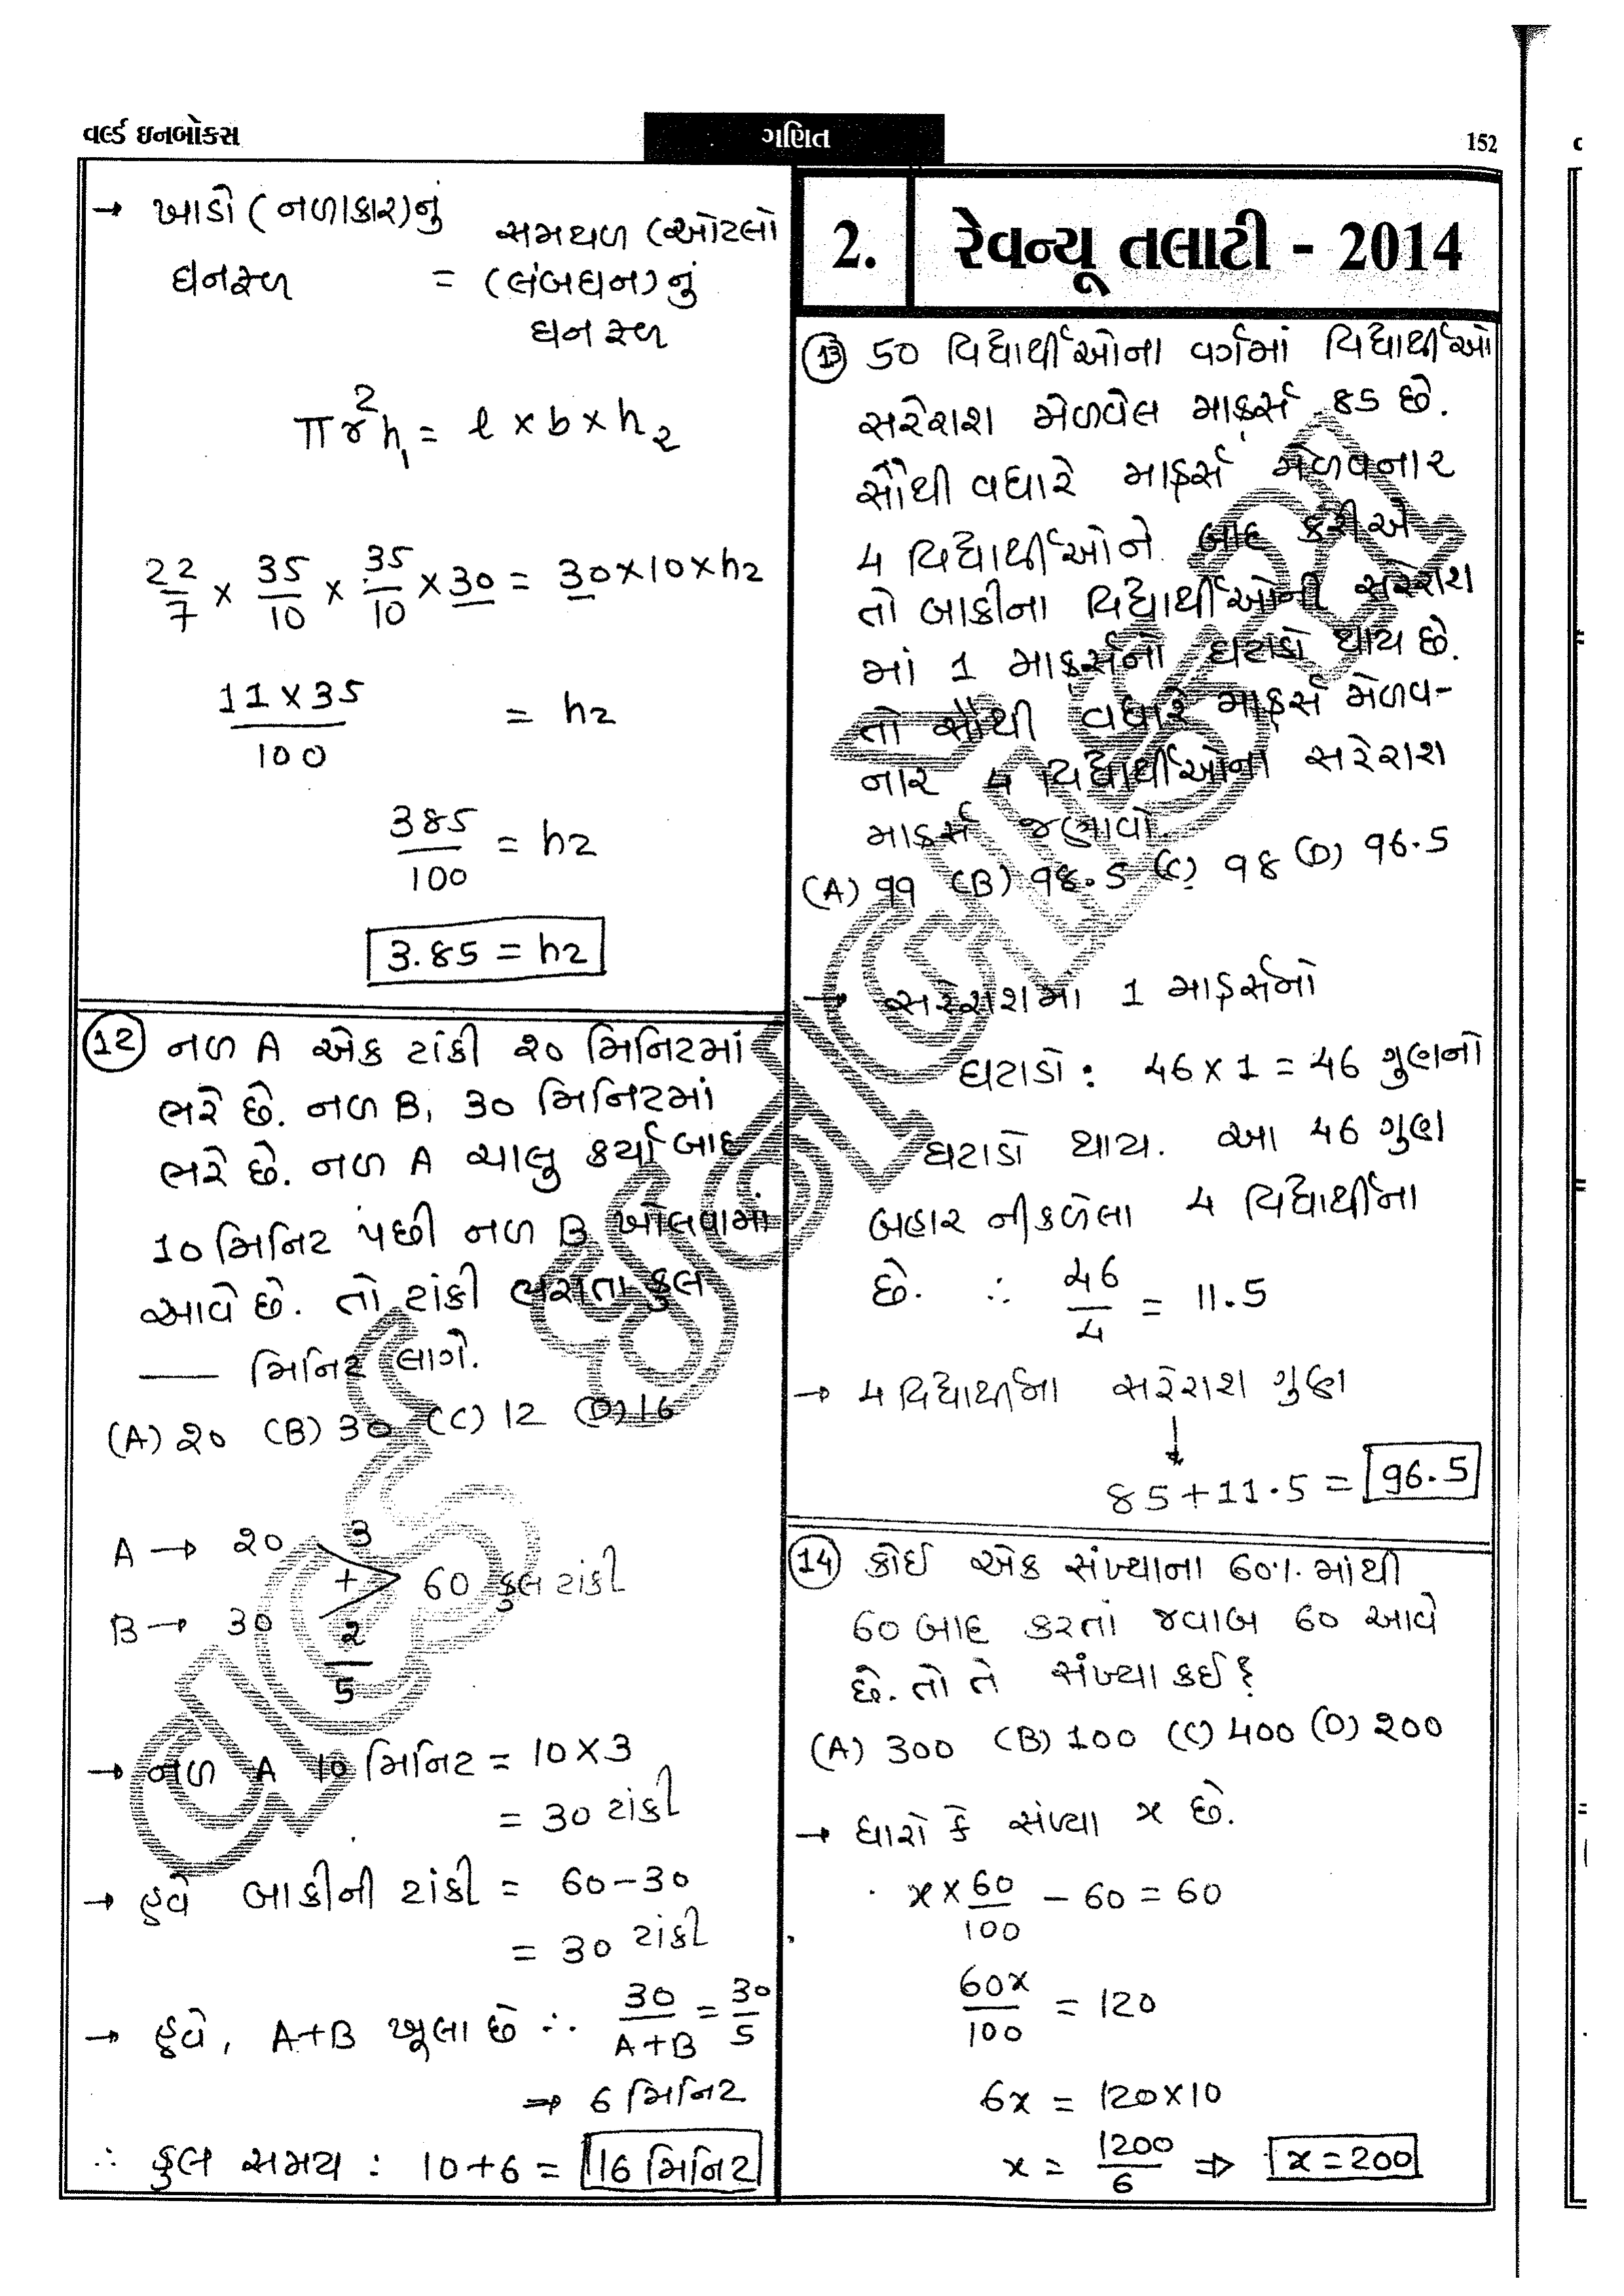 વર્લ્ડ ઇનબોક્સ
ગણિત
152
→ ખાડો (નળાકાર)નું
સમથળ (ઓટલો
ઘનફળ = (લંબઘન)નું
ઘનફળ
πr²h₁ = l × b × h₂
22/7 × 35/10 × 35/10 × 30 = 30×10×h2
11×35/100 = h2
385/100 = h2
3.85 = h2
(12) નળ A એક ટાંકી ૨૦ મિનિટમાં
ભરે છે. નળ B, 30 મિનિટમાં
ભરે છે. નળ A ચાલુ કર્યા બાદ
10 મિનિટ પછી નળ B ખોલવામાં
આવે છે. તો ટાંકી ભરાતા કુલ
—— મિનિટ લાગે.
(A) ૨૦ (B) 30 (C) 12 (D) 16
A → ૨૦ 3
+ 60 કુલ ટાંકી
B → 30 ૨
5
→ નળ A 10 મિનિટ = 10×3
= 30 ટાંકી
→ હવે બાકીની ટાંકી = 60-30
= 30 ટાંકી
→ હવે, A+B ખૂલા છે ∴ 30/A+B = 30/5
⇒ 6 મિનિટ
∴ કુલ સમય : 10+6 = 16 મિનિટ
2. રેવન્યૂ તલાટી - 2014
(13) 50 વિદ્યાર્થીઓના વર્ગમાં વિદ્યાર્થીઓ
સરેરાશ મેળવેલ માર્ક્સ 85 છે.
સૌથી વધારે માર્ક્સ મેળવનાર
4 વિદ્યાર્થીઓને બાદ કરીએ
તો બાકીના વિદ્યાર્થીઓની સરેરાશ
માં 1 માર્ક્સનો ઘટાડો થાય છે.
તો સૌથી વધારે માર્ક્સ મેળવ-
નાર 4 વિદ્યાર્થીઓના સરેરાશ
માર્ક્સ જણાવો.
(A) 99 (B) 98.5 (C) 98 (D) 96.5
→ સરેરાશમાં 1 માર્ક્સનો
ઘટાડો : 46×1 = 46 ગુણનો
ઘટાડો થાય. આ 46 ગુણ
બહાર નીકળેલા 4 વિદ્યાર્થીના
છે. ∴ 46/4 = 11.5
→ 4 વિદ્યાર્થીના સરેરાશ ગુણ
↓
85+11.5 = 96.5
(14) કોઈ એક સંખ્યાના 60% માંથી
60 બાદ કરતાં જવાબ 60 આવે
છે. તો તે સંખ્યા કઈ?
(A) 300 (B) 100 (C) 400 (D) ૨00
→ ધારો કે સંખ્યા x છે.
x × 60/100 - 60 = 60
60x/100 = 120
6x = 120×10
x = 1200/6 ⇒ x = 200